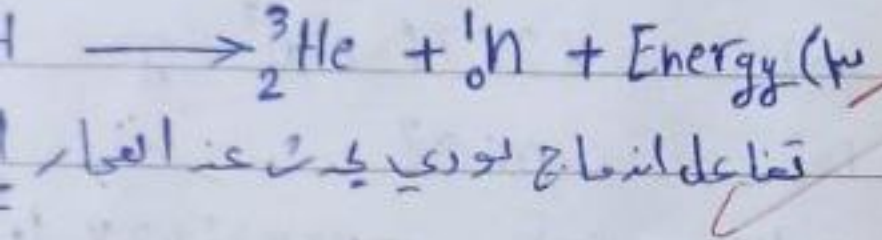 H ⟶ ³₂He + ¹₀n + Energy (٣
تفاعل اندماج نووي يحدث عند انفجار